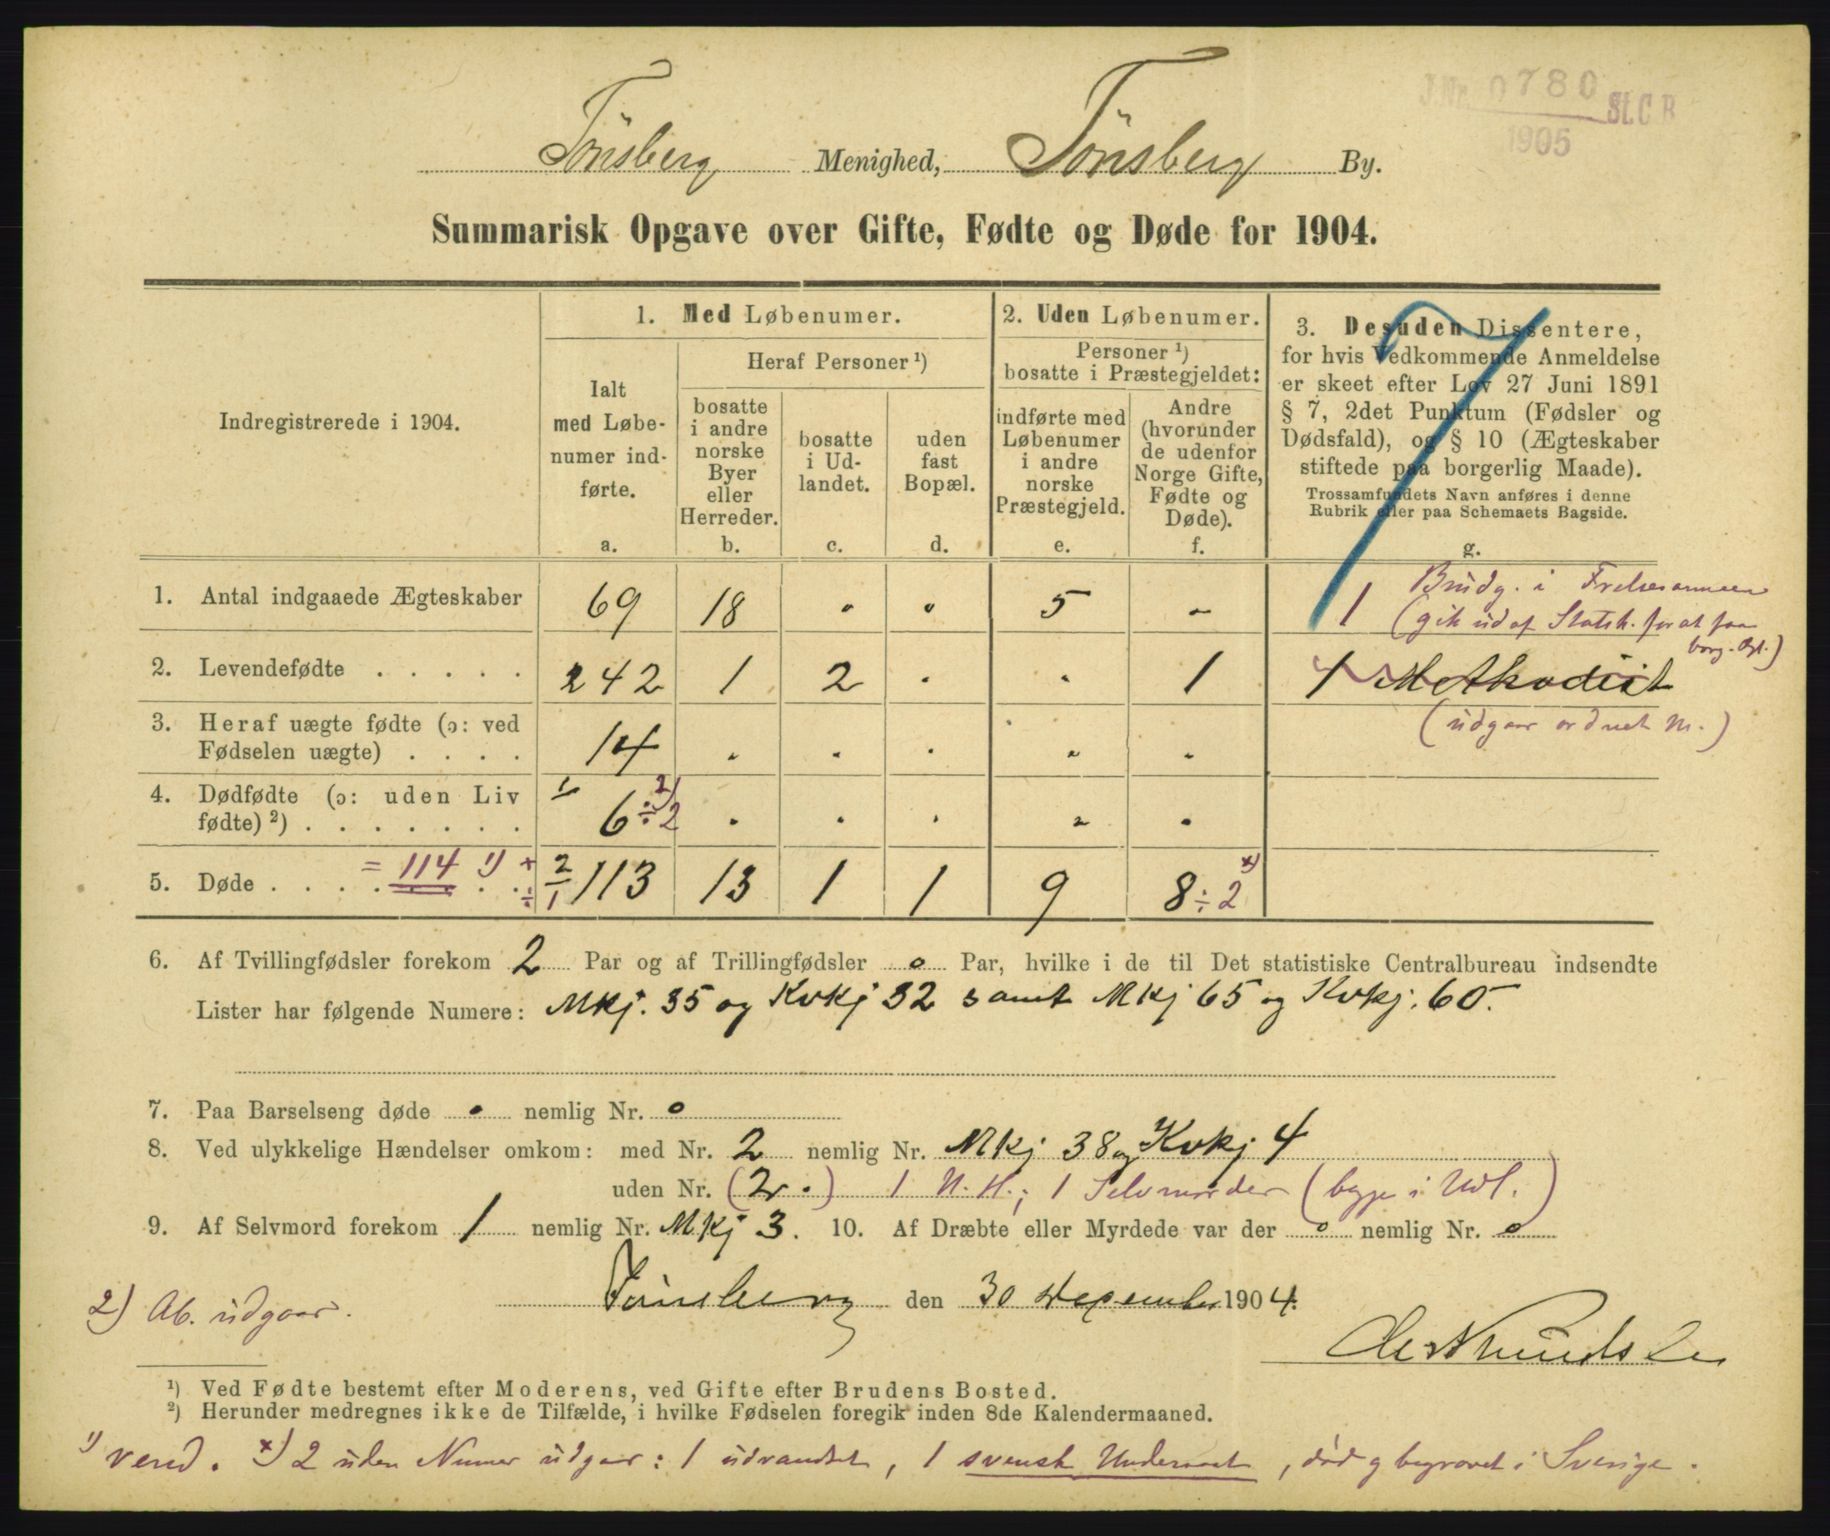 J.Nr. 0780 St.C.B
1905
Tönsberg Menighed, Tönsberg By.
Summarisk Opgave over Gifte, Fødte og Døde for 1904.
Indregistrerede i 1904.
1. Med Løbenumer.
Ialt
med Løbe-
numer ind-
førte.
a.
Heraf Personer ¹)
bosatte
i andre
norske
Byer
eller
Herreder.
b.
bosatte
i Ud-
landet.
c.
uden
fast
Bopæl.
d.
2. Uden Løbenumer.
Personer ¹)
bosatte i Præstegjeldet:
indførte med
Løbenumer
i andre
norske
Præstegjeld.
e.
Andre
(hvorunder
de udenfor
Norge Gifte,
Fødte og
Døde).
f.
3. Desuden Dissentere,
for hvis Vedkommende Anmeldelse
er skeet efter Lov 27 Juni 1891
§ 7, 2det Punktum (Fødsler og
Dødsfald), og § 10 (Ægteskaber
stiftede paa borgerlig Maade).
Trossamfundets Navn anføres i denne
Rubrik eller paa Schemaets Bagside.
g.
1. Antal indgaaede Ægteskaber 69 18 " " 5 " 1 Brudg. i Frelsesarmeen
(gik ud af Statsk. for at faa
borg. Ægt.)
2. Levendefødte . . . . . 242 1 2 . . 1 1 Methodist
(udgaar ordnet M.)
3. Heraf uægte fødte (ɔ: ved
Fødselen uægte) . . . . 14 . . . " "
4. Dødfødte (ɔ: uden Liv
fødte) ²) . . . . . . . 6 ÷ 2 ²) . . . " .
5. Døde . . . . = 114 ¹) + 2 ÷ 1 113 13 1 1 9 8 ÷ 2 ˣ)
6. Af Tvillingfødsler forekom 2 Par og af Trillingfødsler o Par, hvilke i de til Det statistiske Centralbureau indsendte
Lister har følgende Numere: Mkj. 35 og Kvkj 32 samt Mkj 65 og Kvkj. 60.
7. Paa Barselseng døde • nemlig Nr. o
8. Ved ulykkelige Hændelser omkom: med Nr. 2 nemlig Nr. Mkj 38 og Kvkj 4
uden Nr. (2 .) 1 U. H.; 1 Selvmorder (begge i Udl.)
9. Af Selvmord forekom 1 nemlig Nr. Mkj 3. 10. Af Dræbte eller Myrdede var der o nemlig Nr. o
Tönsberg den 30 Dezember 1904.
2) Ab. udgaar.
¹) Ved Fødte bestemt efter Moderens, ved Gifte efter Brudens Bosted.
²) Herunder medregnes ikke de Tilfælde, i hvilke Fødselen foregik inden 8de Kalendermaaned.
¹) vend. ˣ) 2 uden Numer udgaar: 1 udvandret, 1 svensk Undersaat, död og begravet i Sverige.